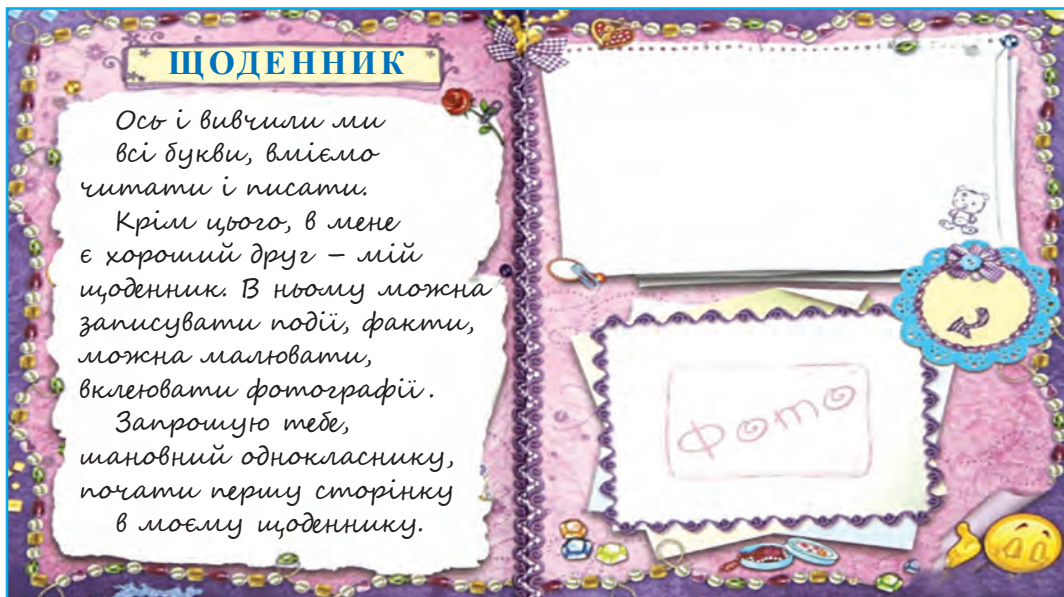 ЩОДЕННИК
Ось і вивчили ми
всі букви, вміємо
читати і писати.
Крім цього, в мене
є хороший друг – мій
щоденник. В ньому можна
записувати події, факти,
можна малювати,
вклеювати фотографії.
Запрошую тебе,
шановний однокласнику,
почати першу сторінку
в моєму щоденнику.
Фото